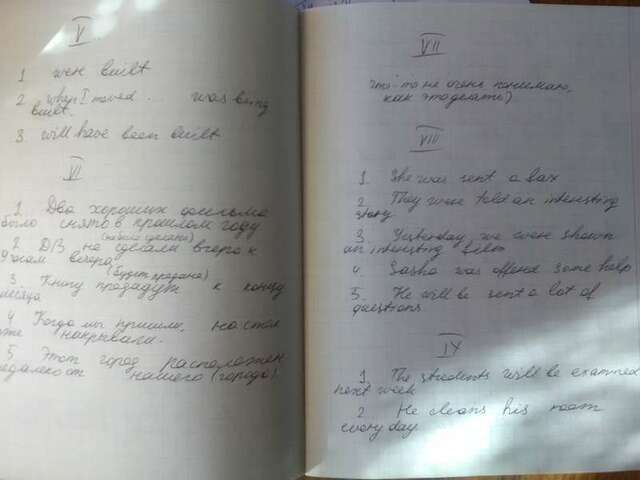 V
1 were built
2 when I moved . was being
built.
3. will have been built
VI
1. Два хороших фильма
было снято в прошлом году
(не было сделано)
2. Д/З не сделали вчера к
9 часам вечера
(будет продана)
3 Книгу продадут к концу
месяца
4 Когда мы пришли, на стол
уже накрывали.
5. Этот город расположен
недалеко от нашего (города).
VII
что-то не очень понимаю,
как это делать?)
VIII
1. She was sent a fax
2. They were told an interesting
story
3. Yesterday, we were shown
an interesting film
4. Sasha was offend some help
5. He will be sent a lot of
questions.
IX
1. The students will be examined
next week
2. He cleans his room
every day